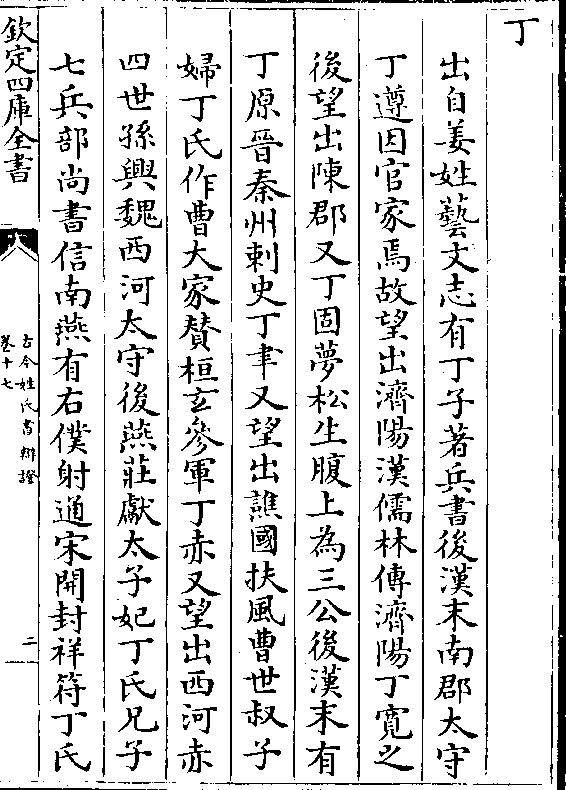 丁
出自姜姓藝文志有丁子著兵書後漢末南郡太守
丁遵因官家焉故望出濟陽漢儒林傳濟陽丁寛之
後望出陳郡又丁固夢松生腹上為三公後漢末有
丁原晉秦州刺史丁聿又望出譙國扶風曹世叔子
婦丁氏作曹大家賛桓玄參軍丁赤又望出西河赤
四世孫興魏西河太守後燕莊獻太子妃丁氏兄子
七兵部尚書信南燕有右僕射通宋開封祥符丁氏
欽定四庫全書
古今姓氏書辯證
卷十七
二